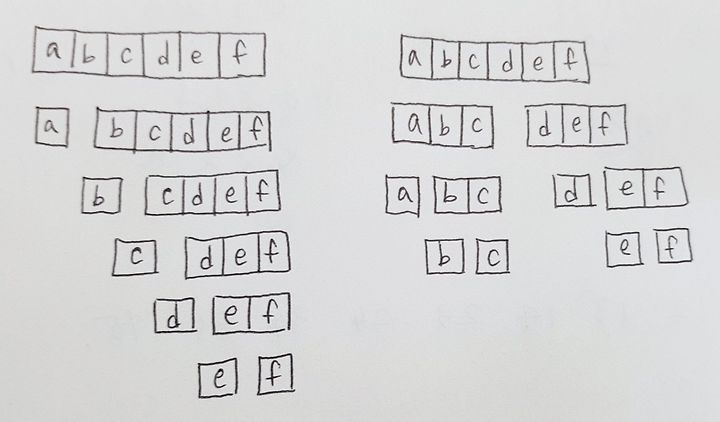 a b c d e f
a b c d e f
b c d e f
c d e f
d e f
e f
a b c d e f
a b c d e f
a b c d e f
b c e f